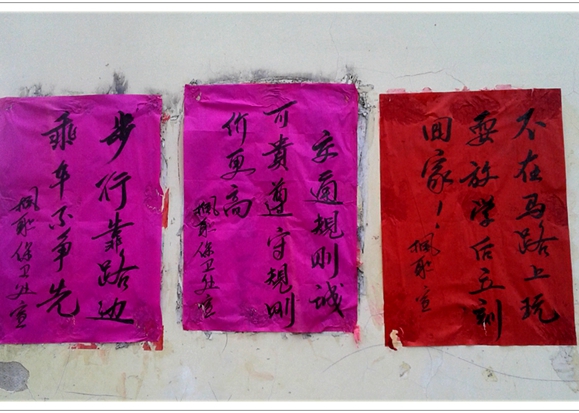 不在马路上玩
耍放学后立刻
回家！
宣
交通規则诚
可貴遵守規则
价更高
保卫处宣
步行靠路边
乘车不争先
保卫处宣